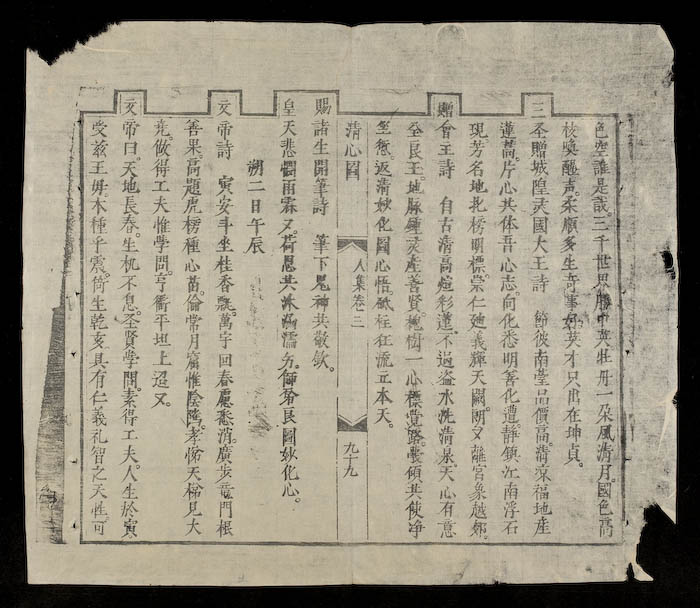 色空誰是哉。三千世界勝中英牡丹一朵風清月。國色高
枝喚醒声。柔順多生奇事好。英才只出在坤貞。
三圣贈城隍灵國大王詩 節彼南臺品價高清凉福地産
蓮蒿。片心共体吾心志。向化悉明善化遭。静鎮江南浮石
現芳名地北榜明標。崇仁廸義輝天闕。朗又離宮象越郊。
贈會王詩 自古清高絵彩蓮。不過溢水洗清泉。天心有意
全民王。地脉鍾灵産善賢。槐樹一心標覚路。曇傾共使净
愆。返清妙化圖心悟。砥柱狂流立本天。
清心圖 人集卷三 九十九
賜諸生開筆詩 筆下鬼神共敬欽。
皇天悲憫雨霖又。荷恩共沐涵濡分。師民圖妙化心。
朔二日午辰
文帝詩 寅安斗坐桂香飄。萬字回春慮悉消。廣步竜門根
善果。高題虎榜種心苗。倫常月窟惟陰隲。孝悌天梯見大
尭。做得工夫惟學問。亨衢平坦上迢又。
文帝曰。天地長春。生机不息。圣賢學問。素得工夫。人生於寅
受兹王好。木種千震。倚生乾亥。具有仁義礼智之天性。可